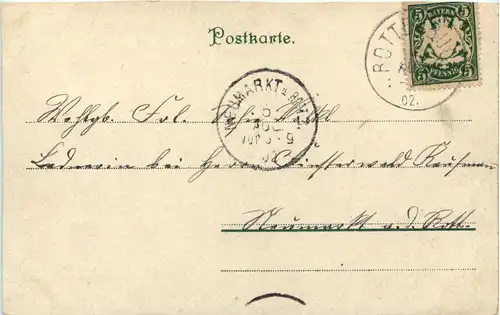 Postkarte.
BAYERN
5 5
PFENNIG
ROTT
02.
NEUMARKT a. R
5
AUG
VOR 8-9
02
Wohlgb. Frl.
Ladnerin bei Herrn Kaufman
Neumarkt a. d. Rott.